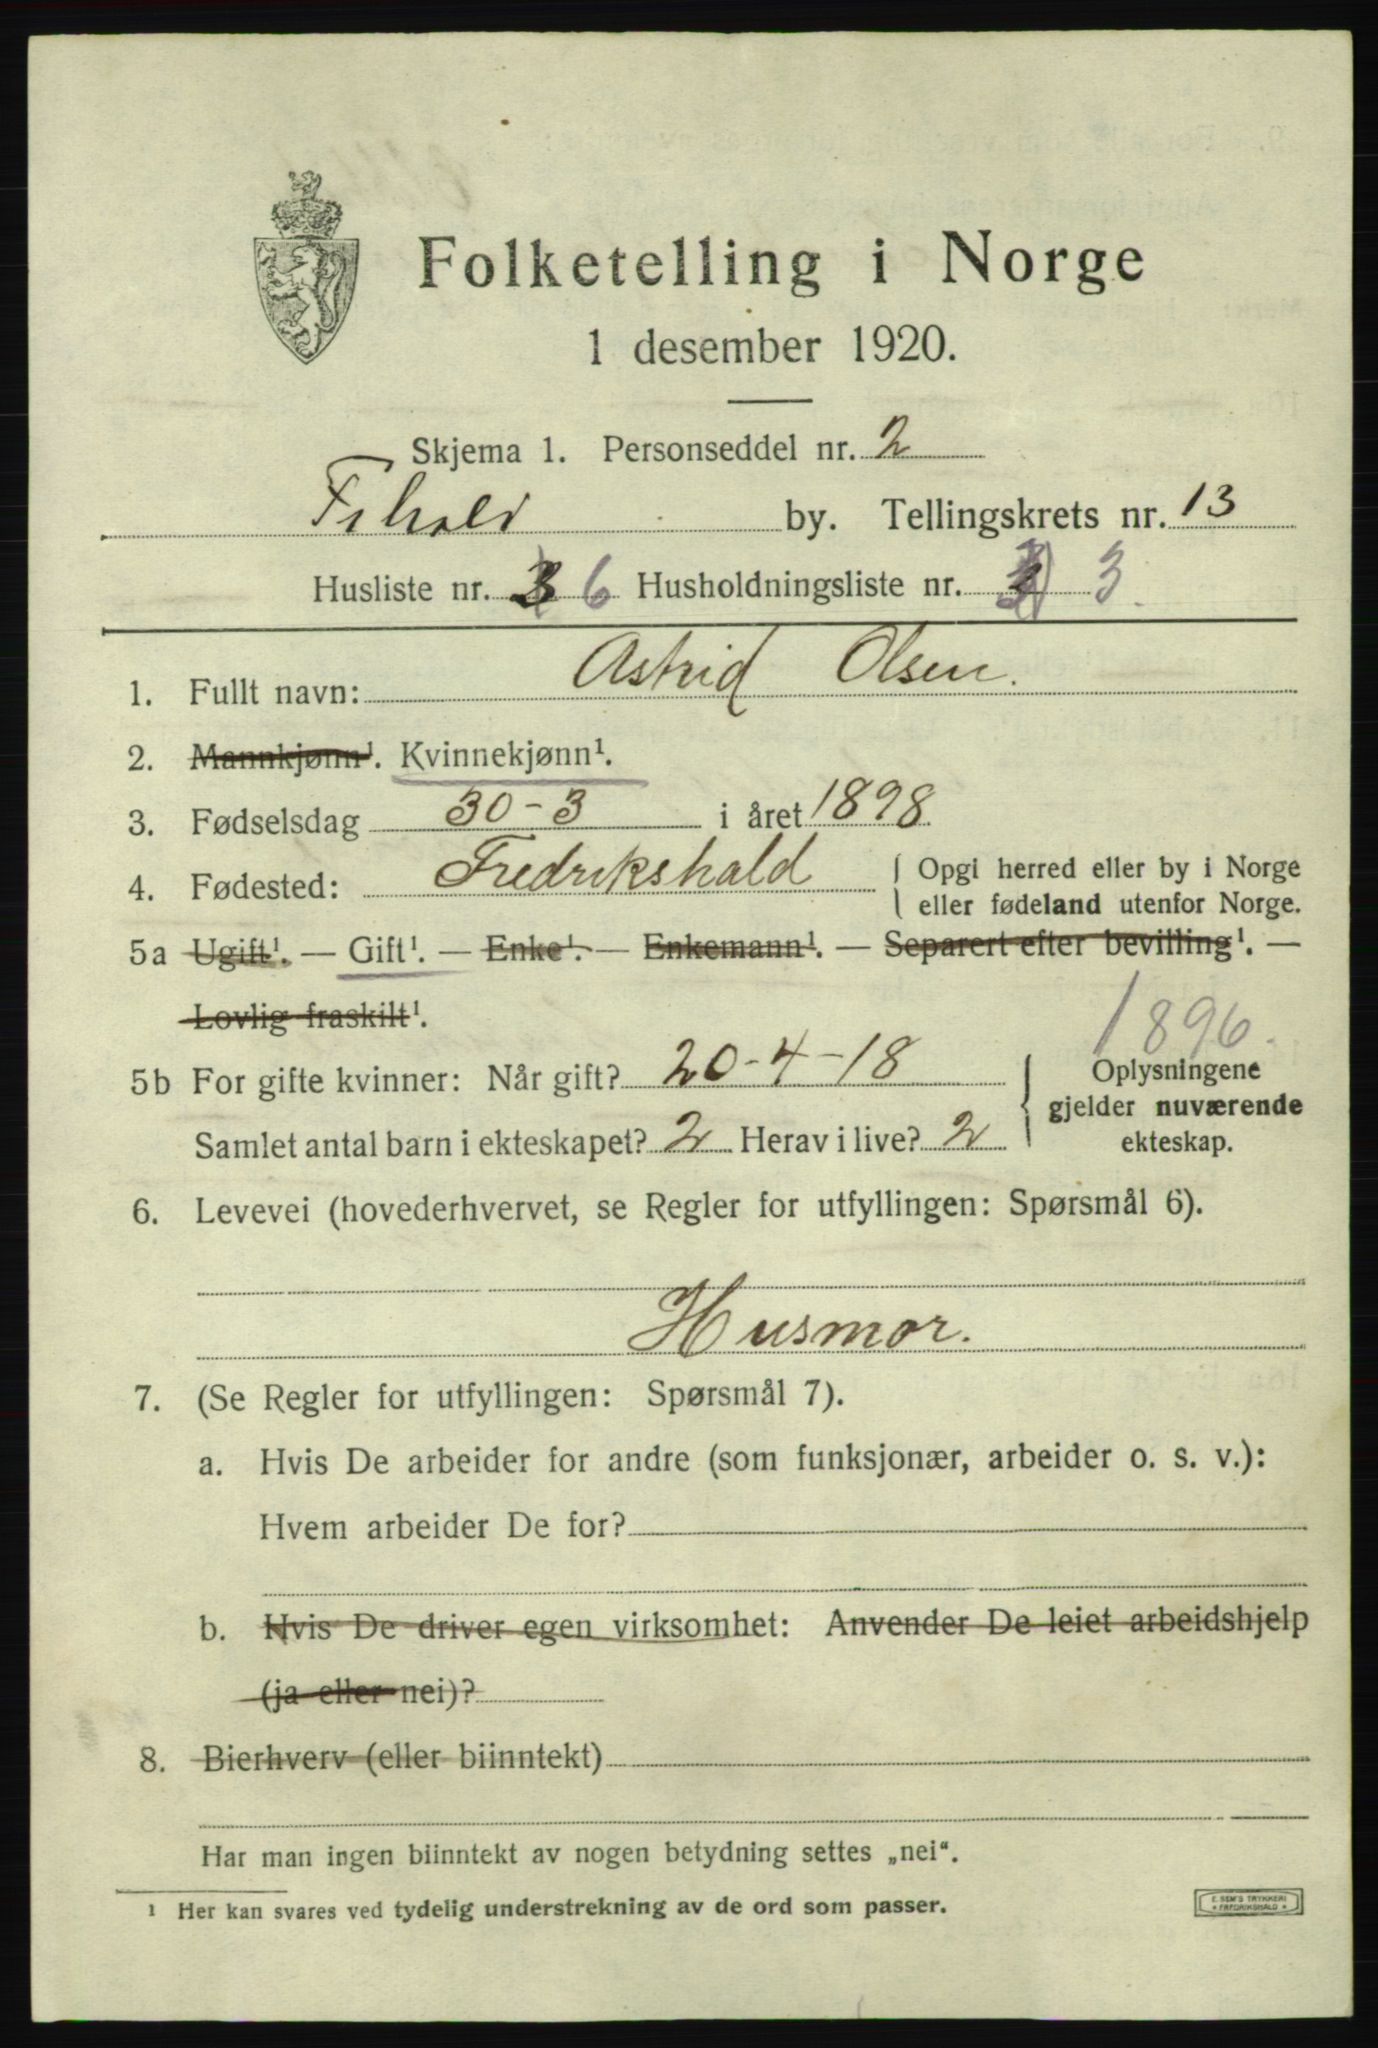 Folketelling i Norge
1 desember 1920.
Skjema 1. Personseddel nr. 2
Fr.hald by. Tellingskrets nr. 13
Husliste nr. 3 6 Husholdningsliste nr. 3
1. Fullt navn: Astrid Olsen.
2. Mannkjønn¹. Kvinnekjønn¹.
3. Fødselsdag 30-3 i året 1898
4. Fødested: Fredrikshald
Opgi herred eller by i Norge
eller fødeland utenfor Norge.
5a Ugift¹. — Gift¹. — Enke¹. — Enkemann¹. — Separert efter bevilling¹. —
Lovlig fraskilt¹.
1896.
5b For gifte kvinner: Når gift? 20-4-18
Samlet antal barn i ekteskapet? 2 Herav i live? 2
Oplysningene
gjelder nuværende
ekteskap.
6. Levevei (hovederhvervet, se Regler for utfyllingen: Spørsmål 6).
Husmor.
7. (Se Regler for utfyllingen: Spørsmål 7).
a. Hvis De arbeider for andre (som funksjonær, arbeider o. s. v.):
Hvem arbeider De for?
b. Hvis De driver egen virksomhet: Anvender De leiet arbeidshjelp
(ja eller nei)?
8. Bierhverv (eller biinntekt)
Har man ingen biinntekt av nogen betydning settes „nei“.
¹ Her kan svares ved tydelig understrekning av de ord som passer.
E. SEM'S TRYKKERI
FREDRIKSHALD